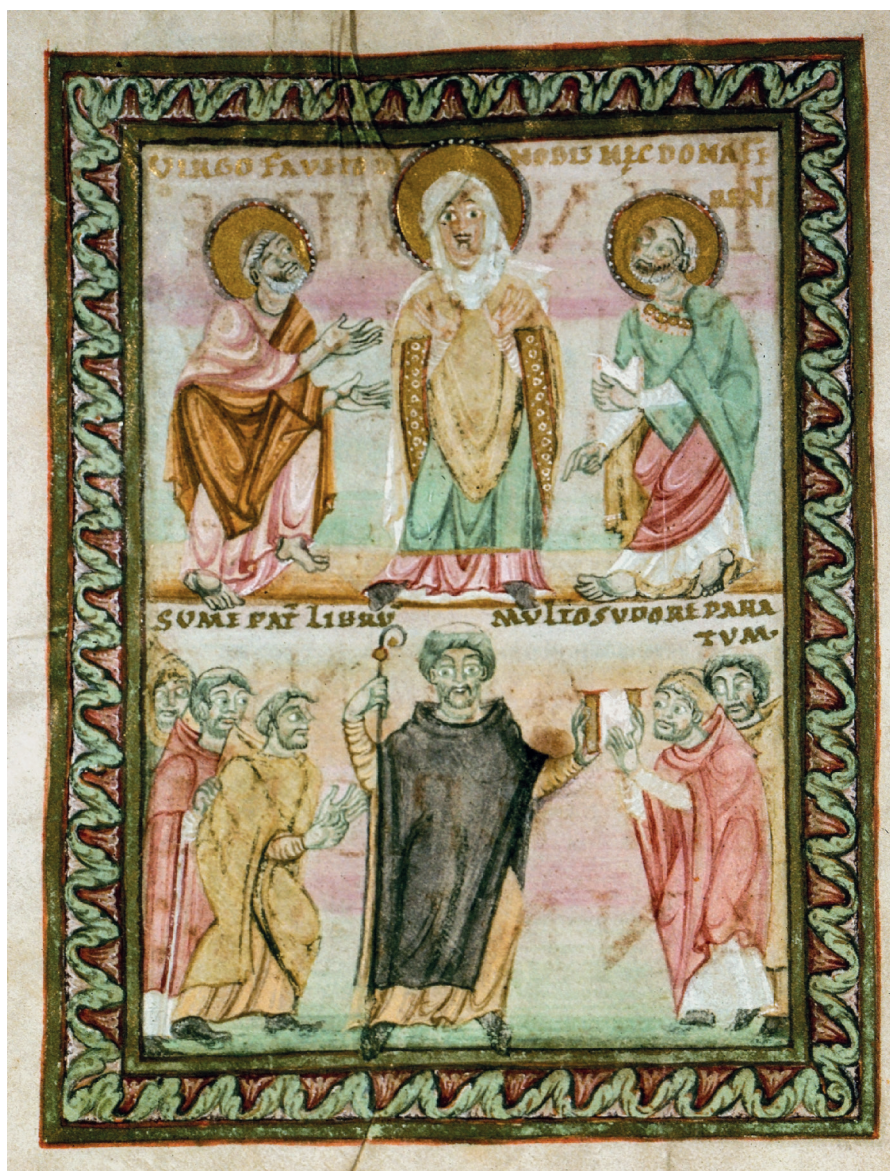 VIRGO FAVETO NOBIS HEC DONA F
SUME PAT̄ LIBRŪ MULTO SUDORE PARA
TUM·